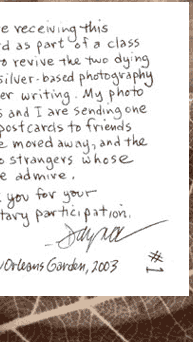 e receiving this
d as part of a class
o revive the two dying
silver-based photography
er writing. My photo
s and I are sending one
postcards to friends
e moved away, and the
o strangers whose
e admire.
you for your
tary participation.
Orleans Garden, 2003
#1